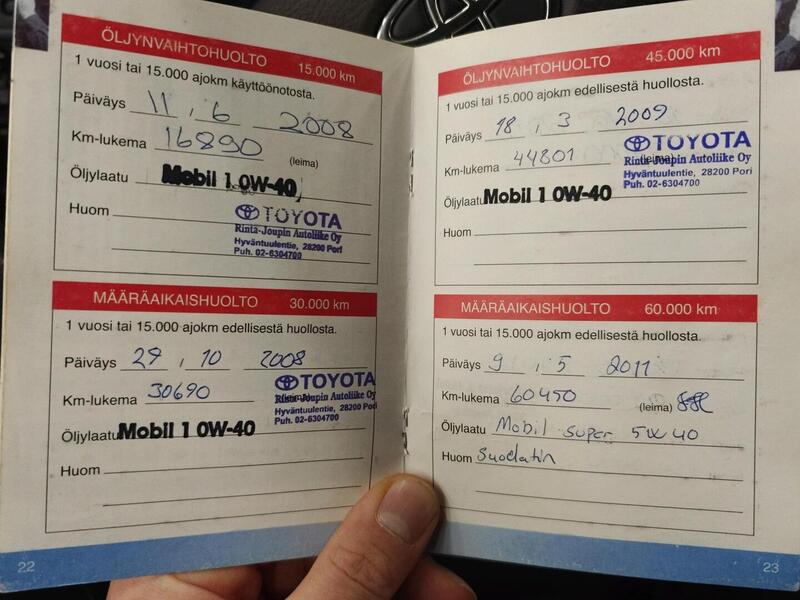 ÖLJYNVAIHTOHUOLTO 15.000 km
1 vuosi tai 15.000 ajokm käyttöönotosta.
Päiväys 11 . 6 2008
Km-lukema 16890 (leima)
Öljylaatu Mobil 1 0W-40
Huom
TOYOTA
Rinta-Joupin Autoliike Oy
Hyväntuulentie, 28200 Pori
Puh. 02-6304700
MÄÄRÄAIKAISHUOLTO 30.000 km
1 vuosi tai 15.000 ajokm edellisestä huollosta.
Päiväys 29 . 10 2008
Km-lukema 30690
TOYOTA
Rinta-Joupin Autoliike Oy
Hyväntuulentie, 28200 Pori
Puh. 02-6304700
Öljylaatu Mobil 1 0W-40
Huom
22
ÖLJYNVAIHTOHUOLTO 45.000 km
1 vuosi tai 15.000 ajokm edellisestä huollosta.
Päiväys 18 . 3 2009
Km-lukema 44801 (leima)
TOYOTA
Rinta-Joupin Autoliike Oy
Hyväntuulentie, 28200 Pori
Puh. 02-6304700
Öljylaatu Mobil 1 0W-40
Huom
MÄÄRÄAIKAISHUOLTO 60.000 km
1 vuosi tai 15.000 ajokm edellisestä huollosta.
Päiväys 9 . 5 2011
Km-lukema 60450 (leima)
Öljylaatu Mobil super 5W40
Huom Suodatin
23